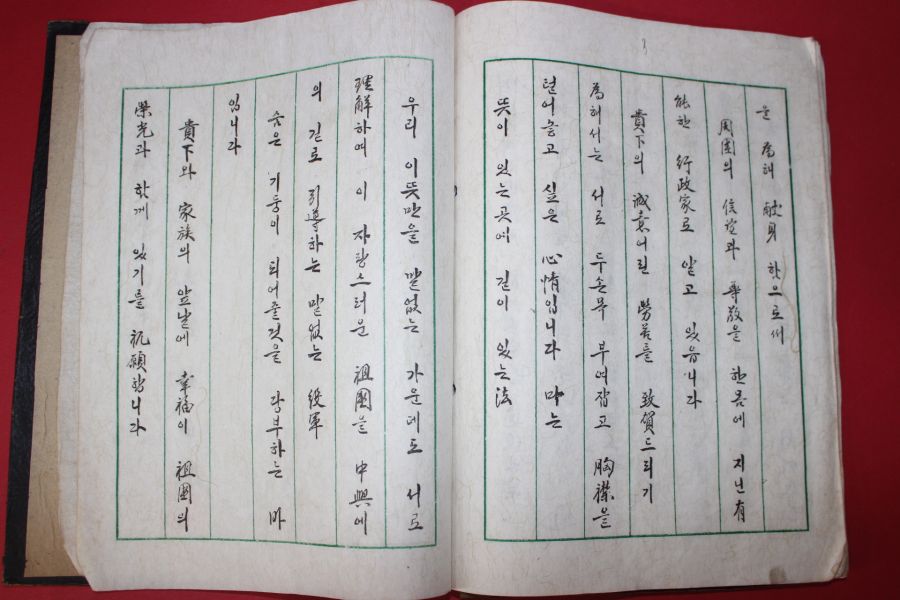 을 爲해 献身 함으로써
周圍의 信望과 尊敬을 한몸에 지닌 有
能한 行政家로 알고 있읍니다
貴下의 誠意어린 勞苦를 致賀드리기
爲해서는 서로 두손목 부여잡고 胸襟을
털어놓고 싶은 心情입니다 마는
뜻이 있는곳에 길이 있는法
우리 이뜻만을 말없는 가운데도 서로
理解하며 이 자랑스러운 祖國을 中興에
의 길로 引導하는 말없는 役軍
숨은 기둥이 되어줄것을 당부하는 바
입니다
貴下와 家族의 앞날에 幸福이 祖國의
榮光과 함께 있기를 祝願합니다